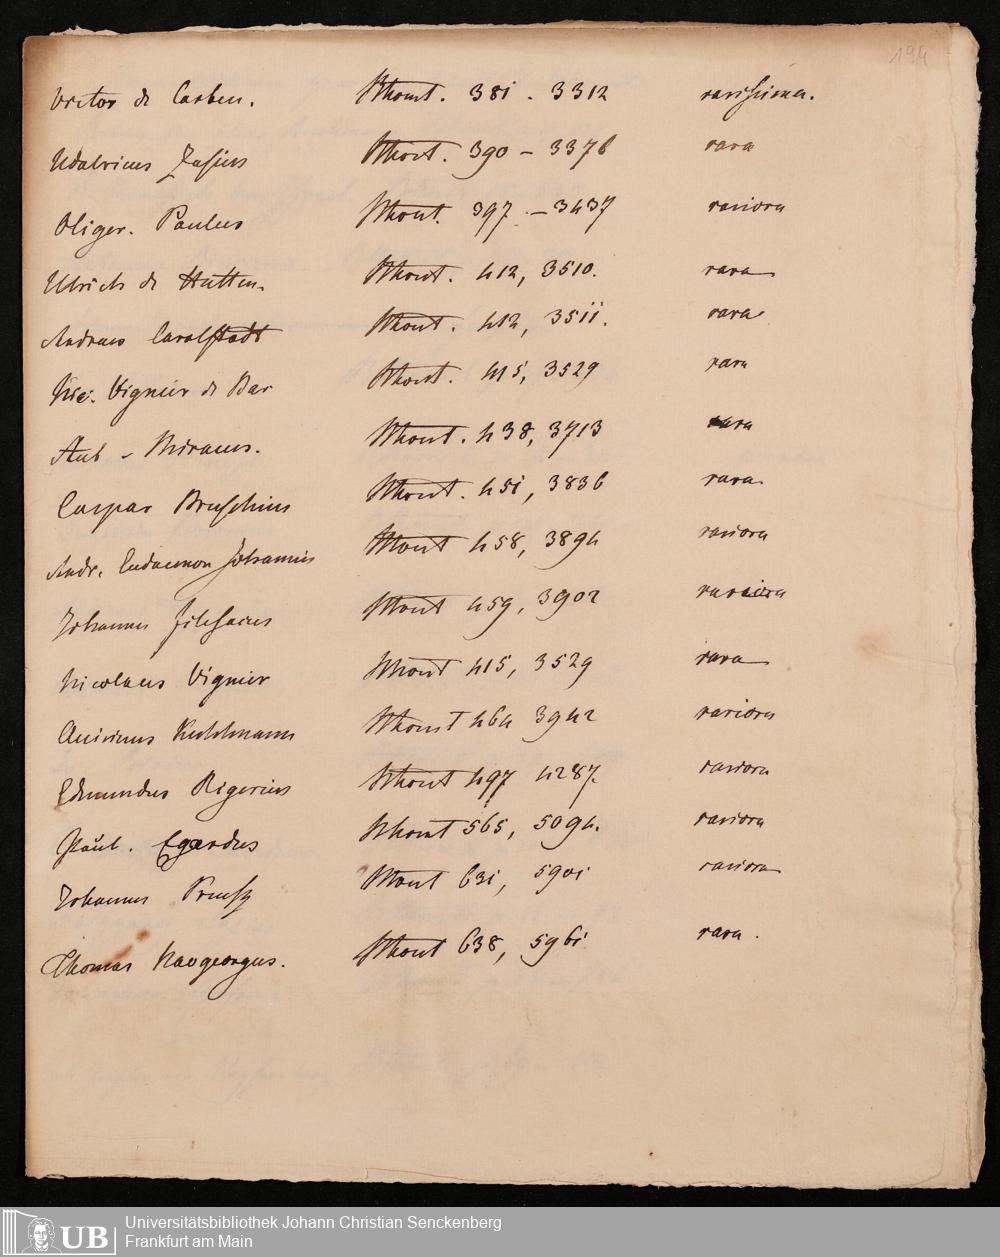 194
Victor de Carben. Thout. 381. 3312 rarissima.
Udalricus Zasius Thout. 390 – 3376 rara
Oliger. Paulus Thout. 397. – 3437 rariora
Ulrich de Hutten. Thout. 412, 3510. rara
Andreas Carolstadt Thout. 412, 3511. rara
Nic. Vignier de Bar Thout. 415, 3529 rara
Aub. Miraeus. Thout. 438, 3713 rara
Caspar Bruschius Thout. 451, 3836 rara
Andr. Eudaemon Johannis Thout 458, 3894 rariora
Johannes Filesacus Thout 459, 3902 rariora
Nicolaus Vignier Thout 415, 3529 rara
Quirinus Kuhlmann Thout 464 3942 rariora
Edmundus Rigerius Thout 497 4287. rariora
Paul. Egardus Thout 565, 5094. rariora
Johannes 631, 5901 rariora
Thomas Naogeorgus. Thout 638, 5961 rara.
Universitätsbibliothek Johann Christian Senckenberg
UB Frankfurt am Main